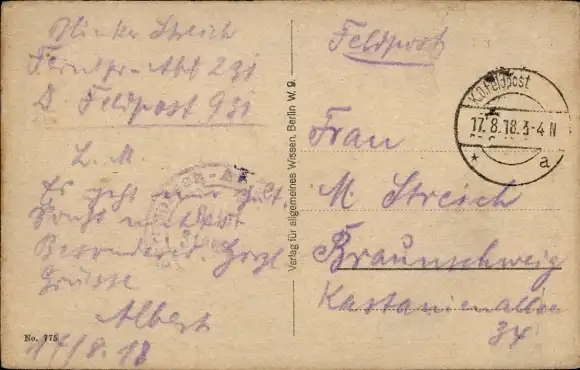 Blinker Streich
Fernspr-Abt 231
D. Feldpost 931
L. M.
Es geht mir gut
Sonst nichts
Besonderes. Herzl
Grüsse
Albert
17/8.18
No. 775
Verlag für allgemeines Wissen, Berlin W. 9.
Feldpost
K.D. Feldpost
17.8.18.3-4 N
* a
Frau
M. Streich
Braunschweig
Kastanienallee
34